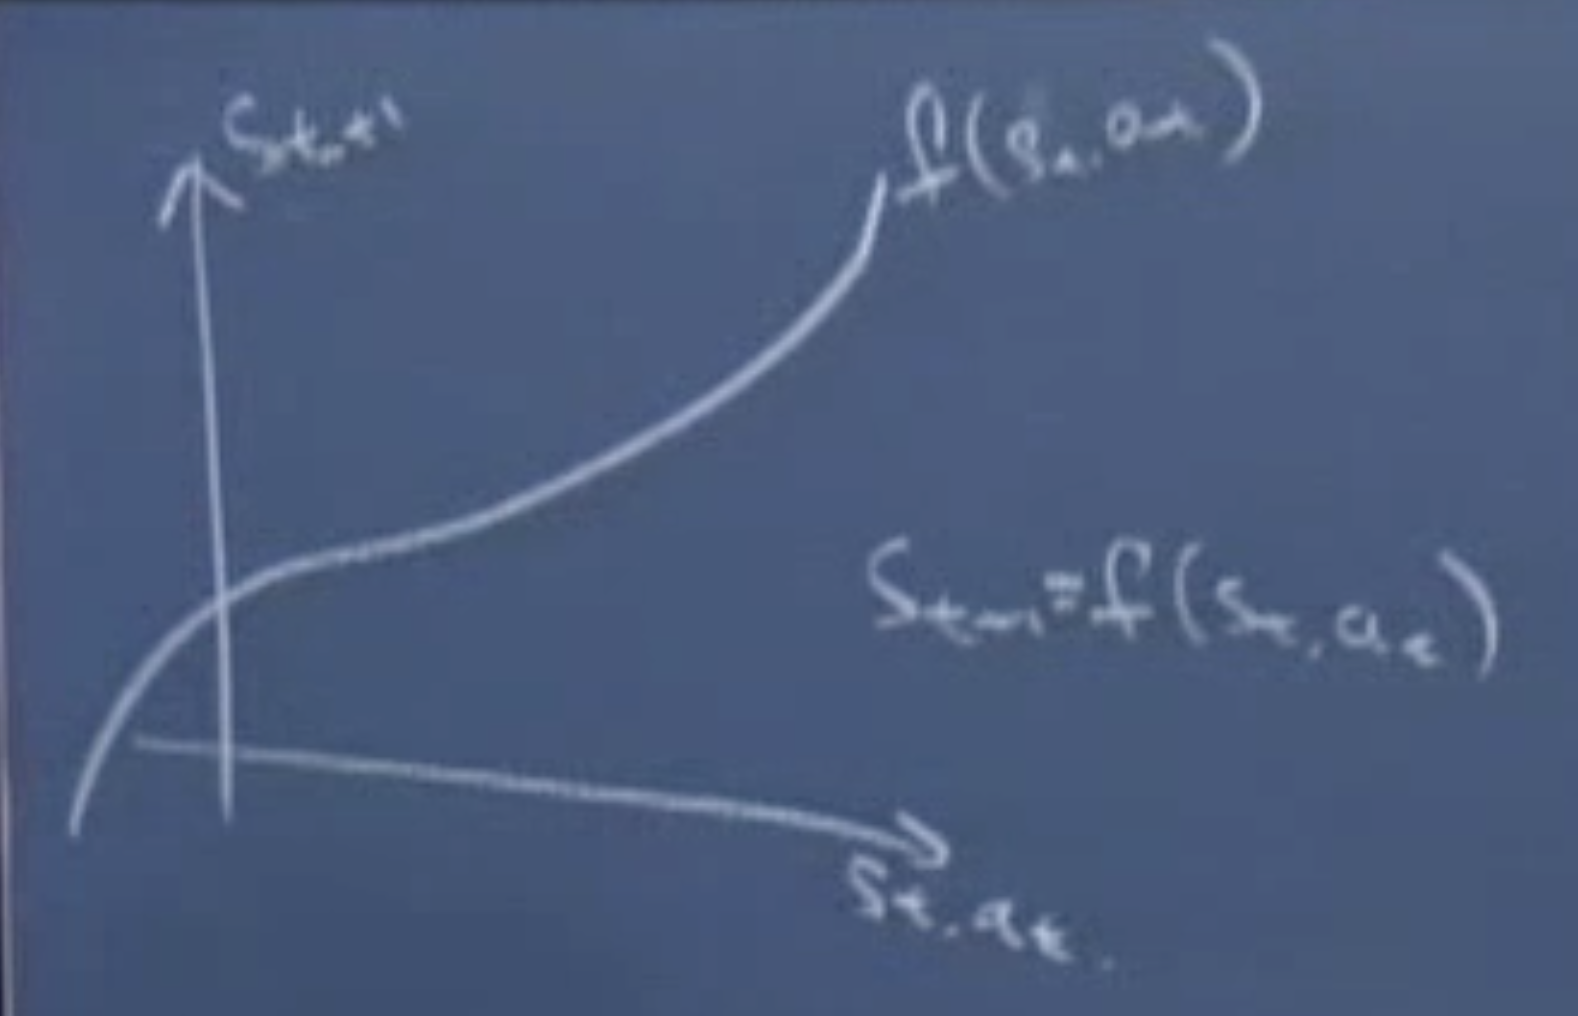 S_{t+1}
f(s_t, a_t)
S_{t+1} = f(s_t, a_t)
S_t, a_t.